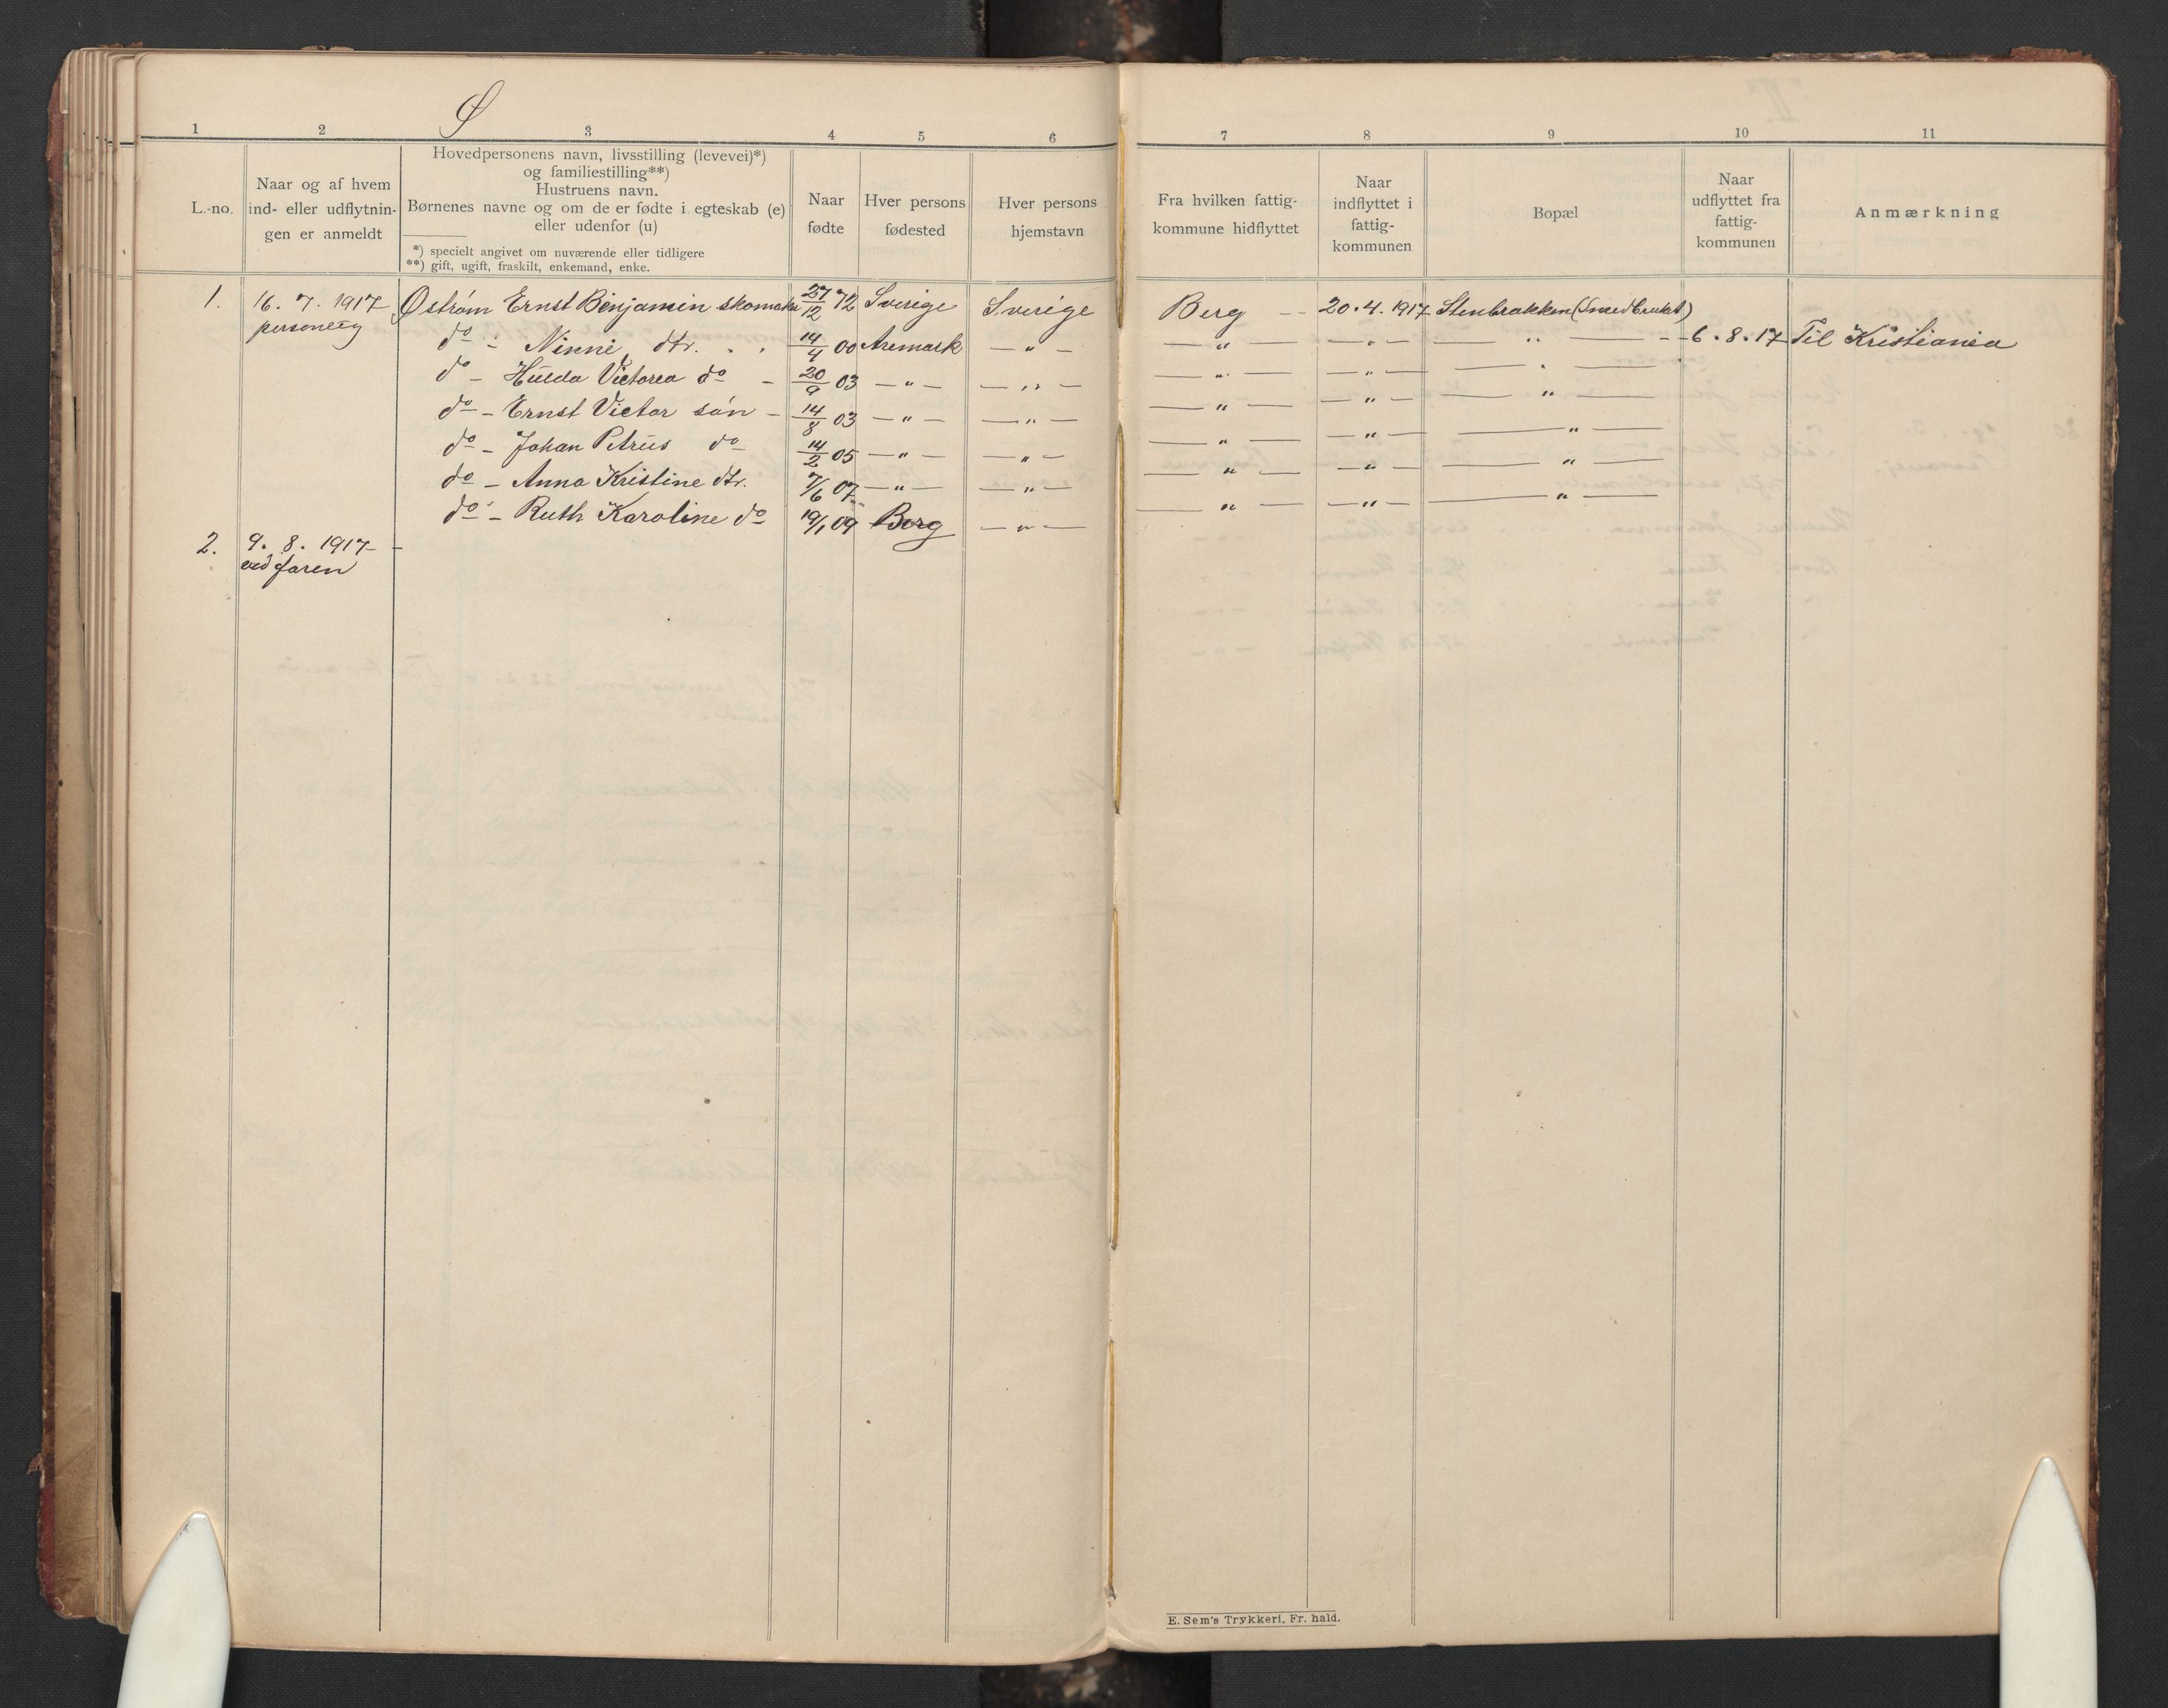 Ø
1 2 3 4 5 6 7 8 9 10 11
L.-no.
Naar og af hvem
ind- eller udflytnin-
gen er anmeldt
Hovedpersonens navn, livsstilling (levevei)*)
og familiestilling**)
Hustruens navn.
Børnenes navne og om de er fødte i egteskab (e)
eller udenfor (u)
*) specielt angivet om nuværende eller tidligere
**) gift, ugift, fraskilt, enkemand, enke.
Naar
fødte
Hver persons
fødested
Hver persons
hjemstavn
Fra hvilken fattig-
kommune hidflyttet
Naar
indflyttet i
fattig-
kommunen
Bopæl
Naar
udflyttet fra
fattig-
kommunen
Anmærkning
1. 16. 7. 1917 Østrøm Ernst Benjamin skomaker 27/12 72 Sverige Sverige Berg -- 20.4. 1917 Stenbrakken (Smedbruket)
personlig
do - Ninni dtr. 14/4 00 Aremark — " — — " — — " — — " — 6.8.17 Til Kristiania
do - Hulda Victoria do - 20/9 03 — " — — " — — " — — " — — " —
do - Ernst Victor søn - 14/8 03 — " — — " — — " — — " — — " —
do - Johan Petrus do 14/2 05 — " — — " — — " — — " — — " —
do - Anna Kristine dtr. 7/6 07 — " — — " — — " — — " — — " —
do - Ruth Karoline do 19/1 09 Berg — " — — " — — " — — " —
2. 9. 8. 1917 -
ved faren
E. Sem's Trykkeri, Fr. hald.